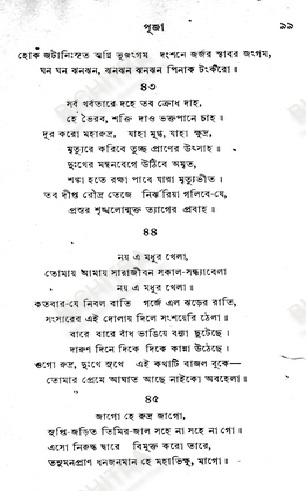 পূজা ৯৯
হোক জটানিঃসৃত অগ্নি ভুজঙ্গম দংশনে জর্জর স্থাবর জঙ্গম,
ঘন ঘন ঝনঝন, ঝনঝন ঝনঝন পিনাক টঙ্করো॥
৪৩
সর্ব খর্বতারে দহে তব ক্রোধ দাহ,
হে ভৈরব, শক্তি দাও ভক্তপানে চাহ॥
দূর করো মহারুদ্র, যাহা মুগ্ধ, যাহা ক্ষুদ্র,
মৃত্যুরে করিবে তুচ্ছ প্রাণের উৎসাহ॥
দুঃখের মন্থনবেগে উঠিবে অমৃত,
শঙ্কা হতে রক্ষা পাবে যারা মৃত্যুভীত।
তব দীপ্ত রৌদ্র তেজে নির্ঝরিয়া গলিবে-যে,
প্রস্তর শৃঙ্খলোন্মুক্ত ত্যাগের প্রবাহ॥
৪৪
নয় এ মধুর খেলা,
তোমায় আমায় সারাজীবন সকাল-সন্ধ্যাবেলা
নয় এ মধুর খেলা॥
কতবার-যে নিবল বাতি গর্জে এল ঝড়ের রাতি,
সংসারের এই দোলায় দিলে সংশয়েরি ঠেলা॥
বারে বারে বাঁধ ভাঙিয়ে বন্যা ছুটেছে।
দারুণ দিনে দিকে দিকে কান্না উঠেছে।
ওগো রুদ্র, দুঃখে সুখে এই কথাটি বাজল বুকে—
তোমার প্রেমে আঘাত আছে নাইকো অবহেলা॥
৪৫
জাগো হে রুদ্র জাগো,
সুপ্তি-জড়িত তিমির-জাল সহে না সহে না গো॥
এসো নিরুদ্ধ দ্বারে বিমুক্ত করো তারে,
তনুমনপ্রাণ ধনজনমান হে মহাভিক্ষু, মাগো॥